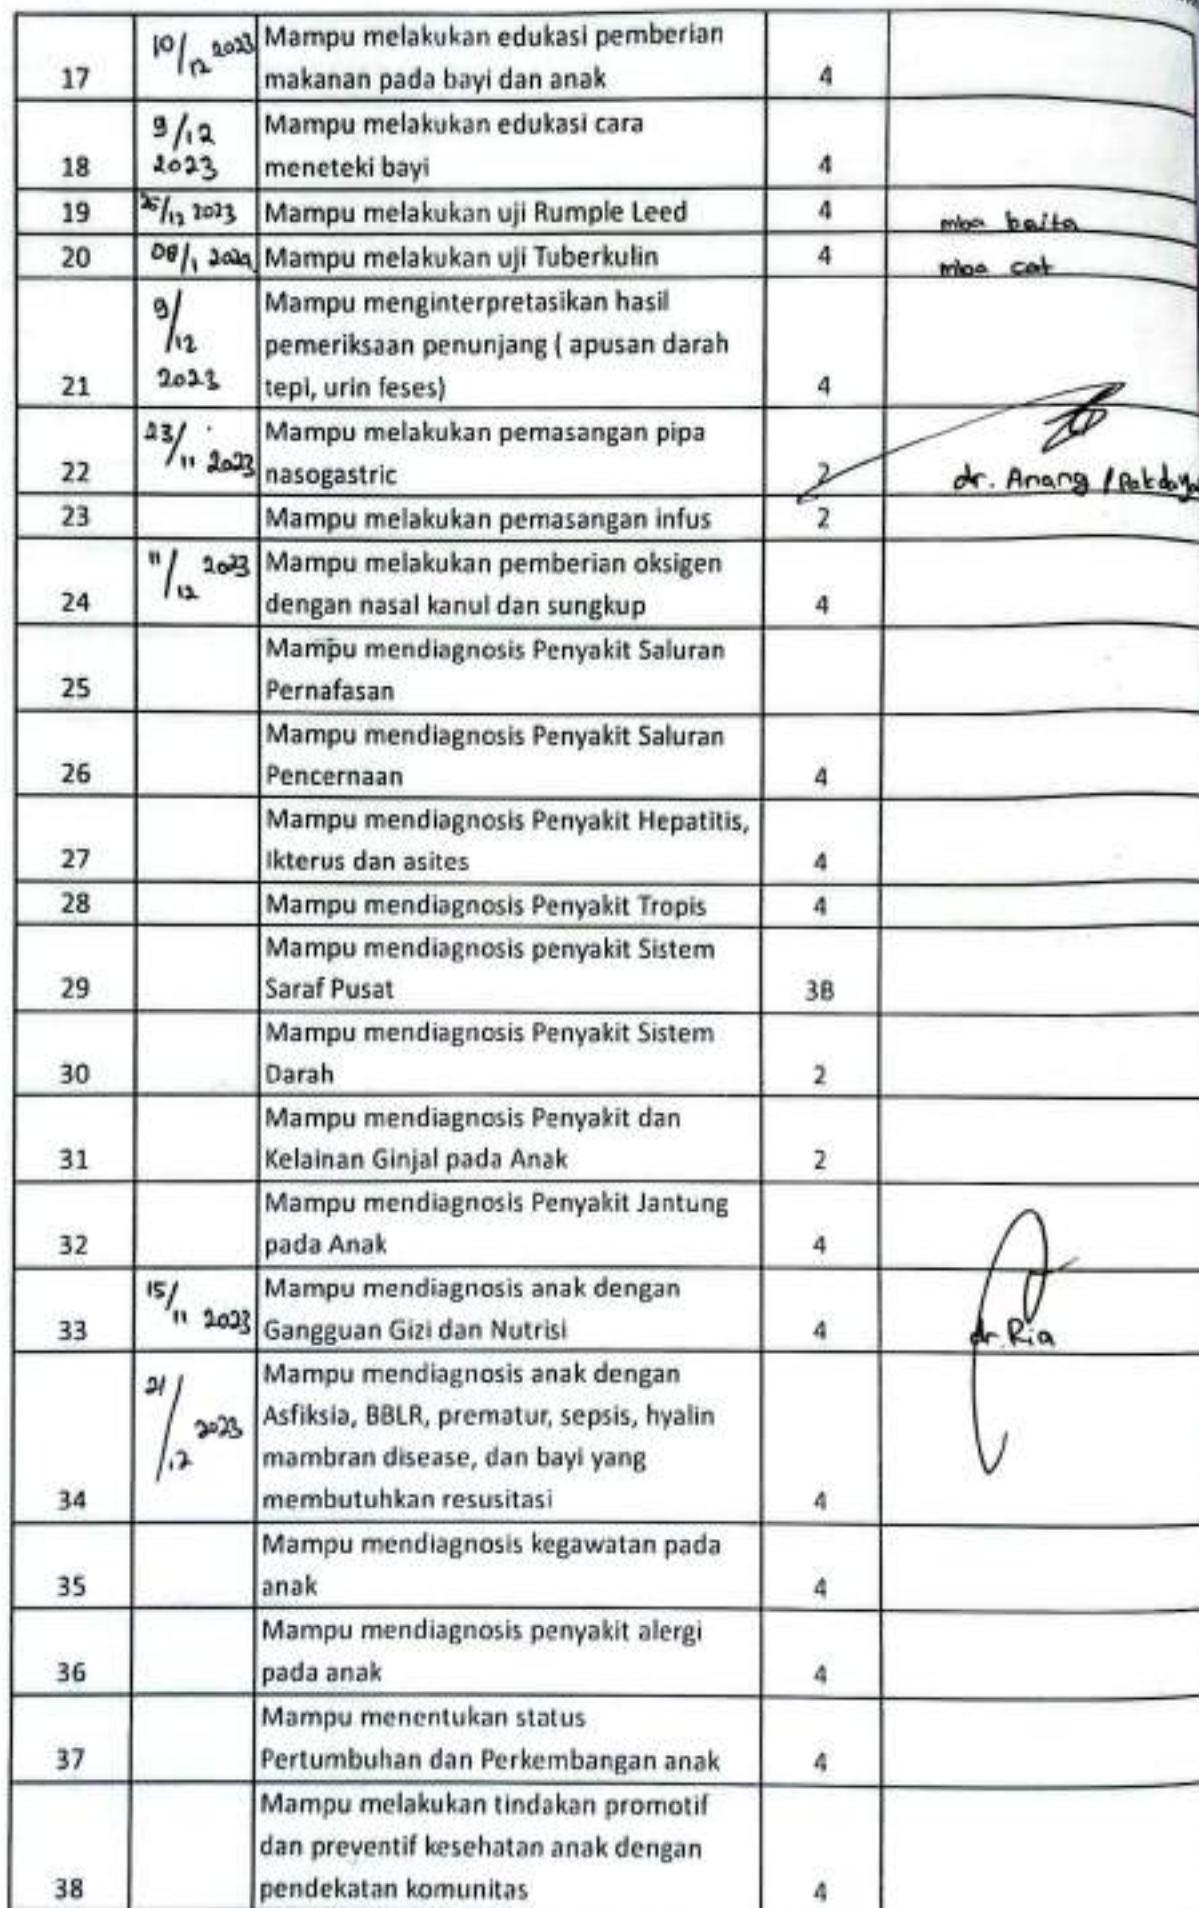 10/12 2023 Mampu melakukan edukasi pemberian
17 makanan pada bayi dan anak 4
9/12 Mampu melakukan edukasi cara
18 2023 meneteki bayi 4
19 26/12 2023 Mampu melakukan uji Rumple Leed 4 mba baita
20 08/1 Mampu melakukan uji Tuberkulin 4 mba cat
9/ Mampu menginterpretasikan hasil
12 pemeriksaan penunjang ( apusan darah
21 2023 tepi, urin feses) 4
23/11 2023 Mampu melakukan pemasangan pipa
22 nasogastric 2 dr. Anang /
23 Mampu melakukan pemasangan infus 2
11/12 2023 Mampu melakukan pemberian oksigen
24 dengan nasal kanul dan sungkup 4
Mampu mendiagnosis Penyakit Saluran
25 Pernafasan
Mampu mendiagnosis Penyakit Saluran
26 Pencernaan 4
Mampu mendiagnosis Penyakit Hepatitis,
27 Ikterus dan asites 4
28 Mampu mendiagnosis Penyakit Tropis 4
Mampu mendiagnosis penyakit Sistem
29 Saraf Pusat 3B
Mampu mendiagnosis Penyakit Sistem
30 Darah 2
Mampu mendiagnosis Penyakit dan
31 Kelainan Ginjal pada Anak 2
Mampu mendiagnosis Penyakit Jantung
32 pada Anak 4
15/11 2023 Mampu mendiagnosis anak dengan
33 Gangguan Gizi dan Nutrisi 4 dr. Ria
21/ Mampu mendiagnosis anak dengan
2023 Asfiksia, BBLR, prematur, sepsis, hyalin
12 mambran disease, dan bayi yang
34 membutuhkan resusitasi 4
Mampu mendiagnosis kegawatan pada
35 anak 4
Mampu mendiagnosis penyakit alergi
36 pada anak 4
Mampu menentukan status
37 Pertumbuhan dan Perkembangan anak 4
Mampu melakukan tindakan promotif
dan preventif kesehatan anak dengan
38 pendekatan komunitas 4